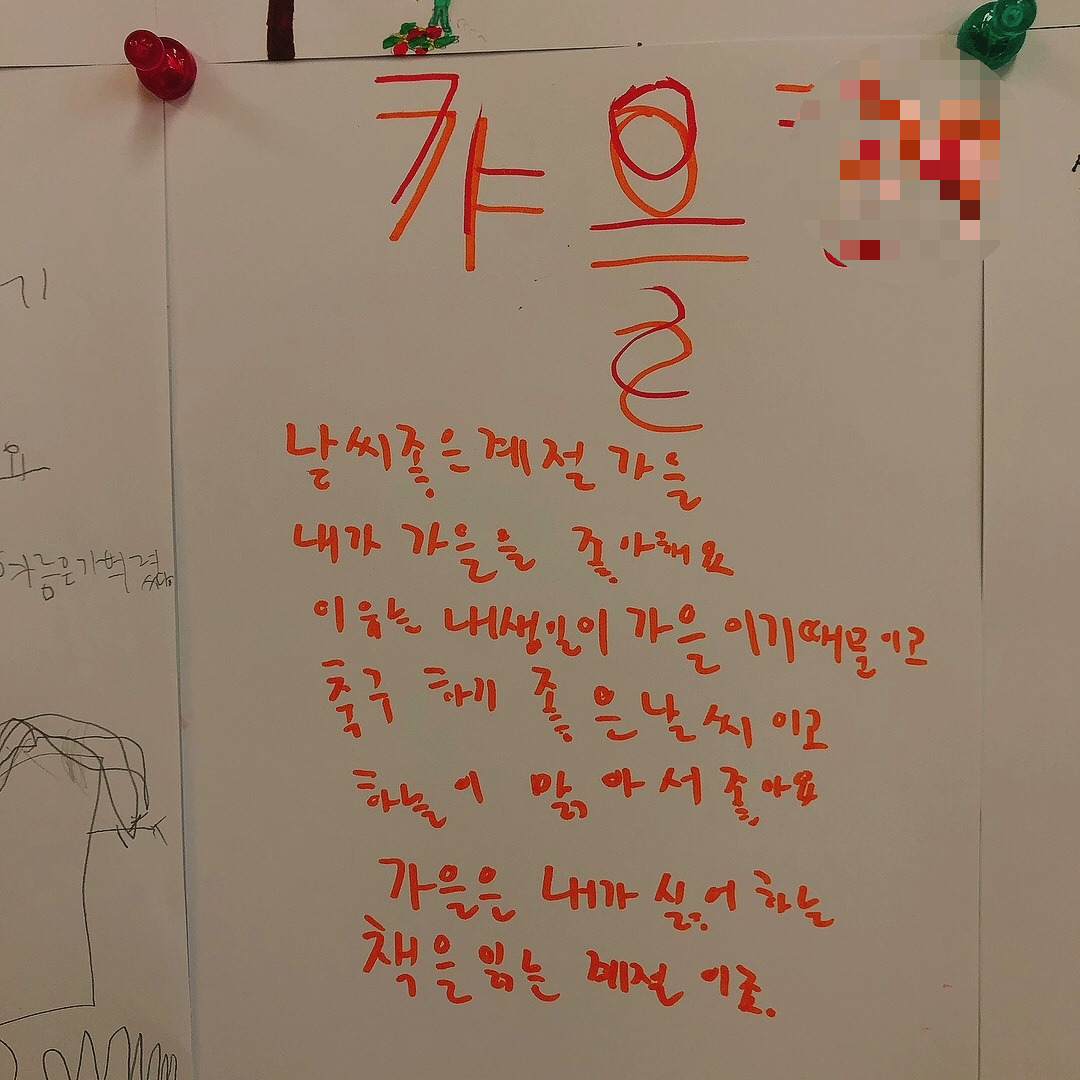 가을
날씨좋은계절 가을
내가 가을을 좋아해요
이윺는 내생일이 가을 이기때믈이고
축구 하기 좋은날씨 이고
하늘이 맑아서좋아요
가을은 내가 싫어하늘
책을읽는 계절 이죠.
기
요